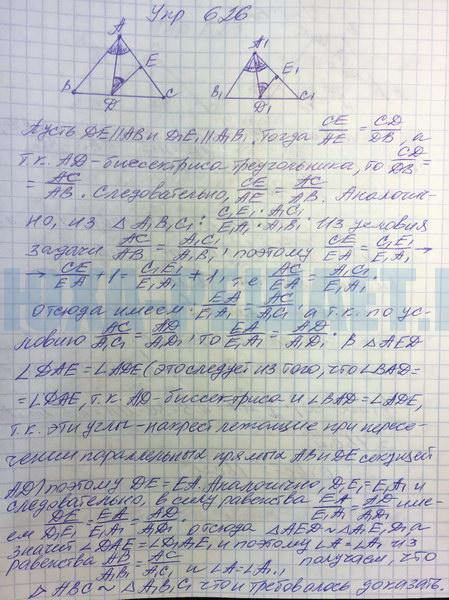 Упр 626
A
E
B
D
C
A₁
E₁
B₁
D₁
C₁
Пусть DE||AB и D₁E₁||A₁B₁. Тогда CE/AE = CD/DB, а
т.к. AD - биссектриса треугольника, то CD/DB =
= AC/AB. Следовательно, CE/AE = AC/AB. Аналогич-
но, из △A₁B₁C₁: C₁E₁/E₁A₁ = A₁C₁/A₁B₁. Из условия
задачи AC/AB = A₁C₁/A₁B₁, поэтому CE/EA = C₁E₁/E₁A₁ →
→ CE/EA + 1 = C₁E₁/E₁A₁ + 1, т.е. AC/EA = A₁C₁/E₁A₁.
Отсюда имеем: EA/E₁A₁ = AC/A₁C₁, а т.к. по ус-
ловию AC/A₁C₁ = AD/A₁D₁, то EA/E₁A₁ = AD/A₁D₁. В △ADE
∠DAE = ∠ADE (это следует из того, что ∠BAD =
= ∠DAE, т.к. AD - биссектриса и ∠BAD = ∠ADE,
т.к. эти углы - накрест лежащие при пересе-
чении параллельных прямых AB и DE секущей
AD) поэтому DE = EA. Аналогично, D₁E₁ = E₁A₁ и
следовательно, в силу равенства EA/E₁A₁ = AD/A₁D₁ име-
ем DE/D₁E₁ = EA/E₁A₁ = AD/A₁D₁. отсюда △AED ~ △A₁E₁D₁, а
значит ∠DAE = ∠D₁A₁E₁ и поэтому ∠A = ∠A₁. Из
равенства AB/A₁B₁ = AC/A₁C₁ и ∠A = ∠A₁, получаем, что
△ABC ~ △A₁B₁C₁ что и требовалось доказать.